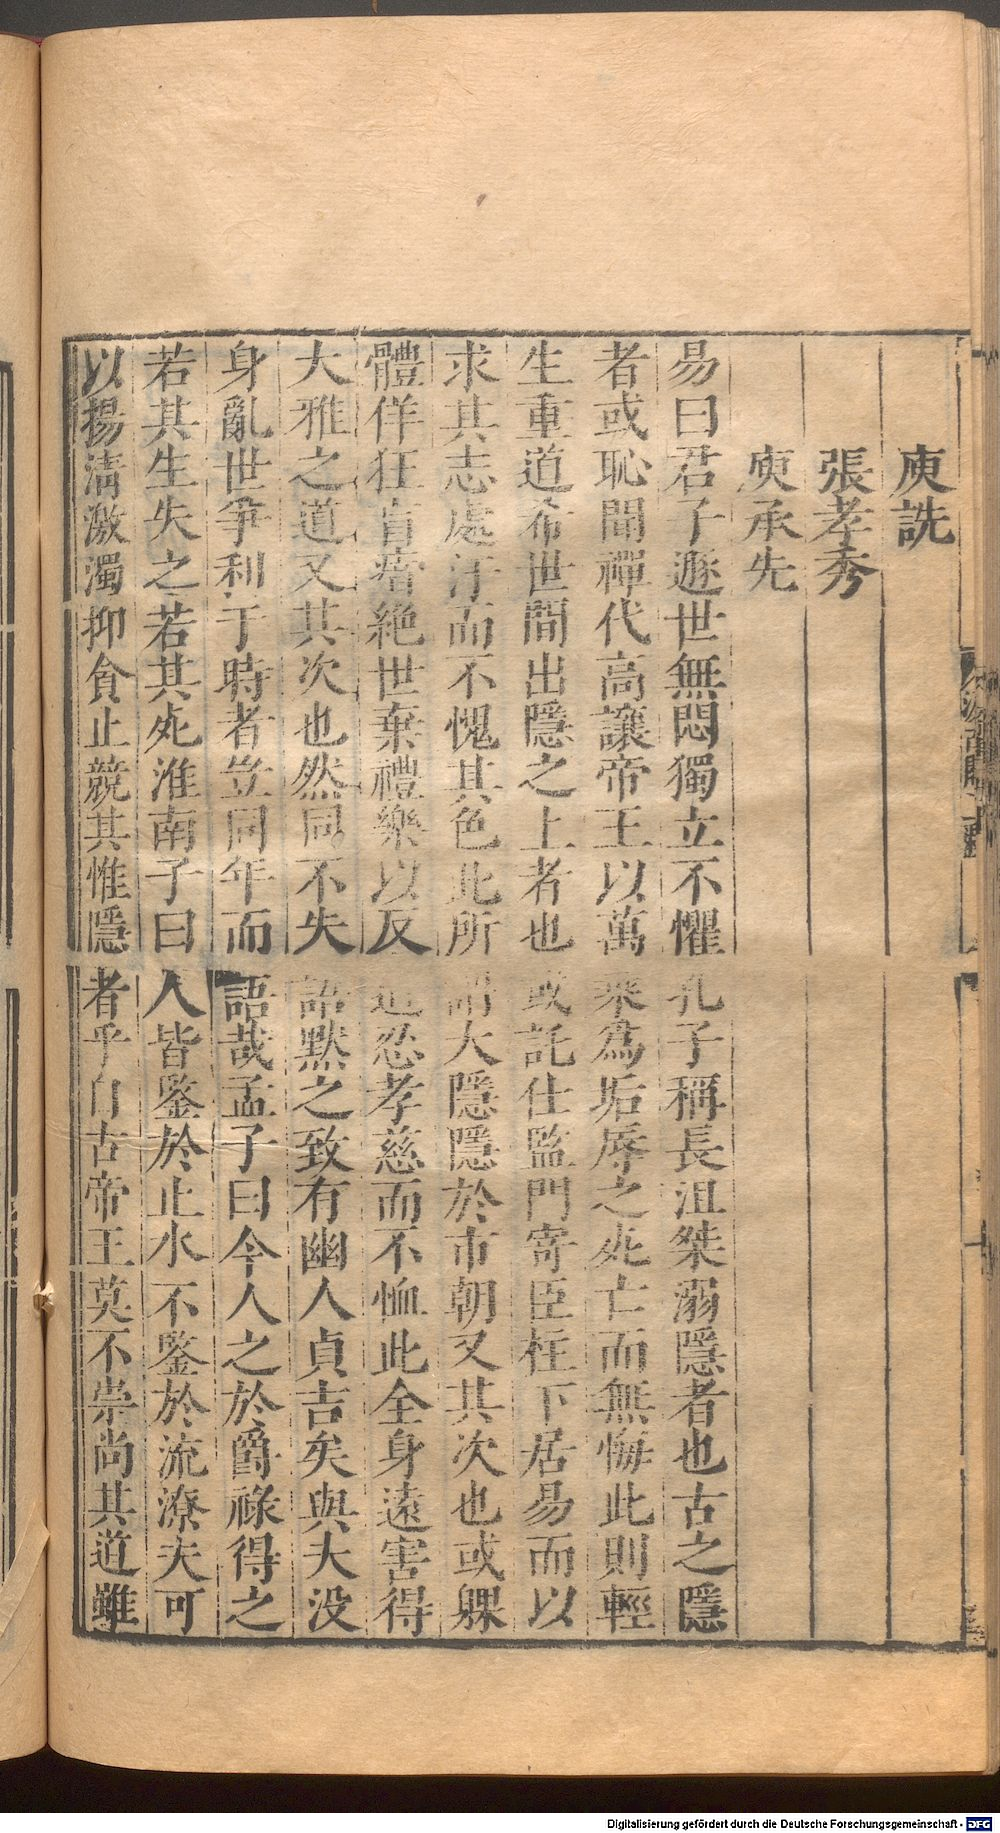 庾詵
張孝秀
庾承先
易曰君子遯世無悶獨立不懼孔子稱長沮桀溺隱者也古之隱
者或恥聞禪代高讓帝王以萬乘爲垢辱之死亡而無悔此則輕
生重道希世間出隱之上者也或託仕監門寄臣柱下居易而以
求其志處汙而不愧其色此所謂大隱隱於市朝又其次也或躶
體佯狂盲瘖絶世棄禮樂以反道忍孝慈而不恤此全身遠害得
大雅之道又其次也然同不失語默之致有幽人貞吉矣與夫没
身亂世爭利于時者豈同年而語哉孟子曰今人之於爵祿得之
若其生失之若其死淮南子曰人皆鑒於止水不鑒於流潦夫可
以揚清激濁抑貪止競其惟隱者乎自古帝王莫不崇尚其道雖
Digitalisierung gefördert durch die Deutsche Forschungsgemeinschaft - DFG